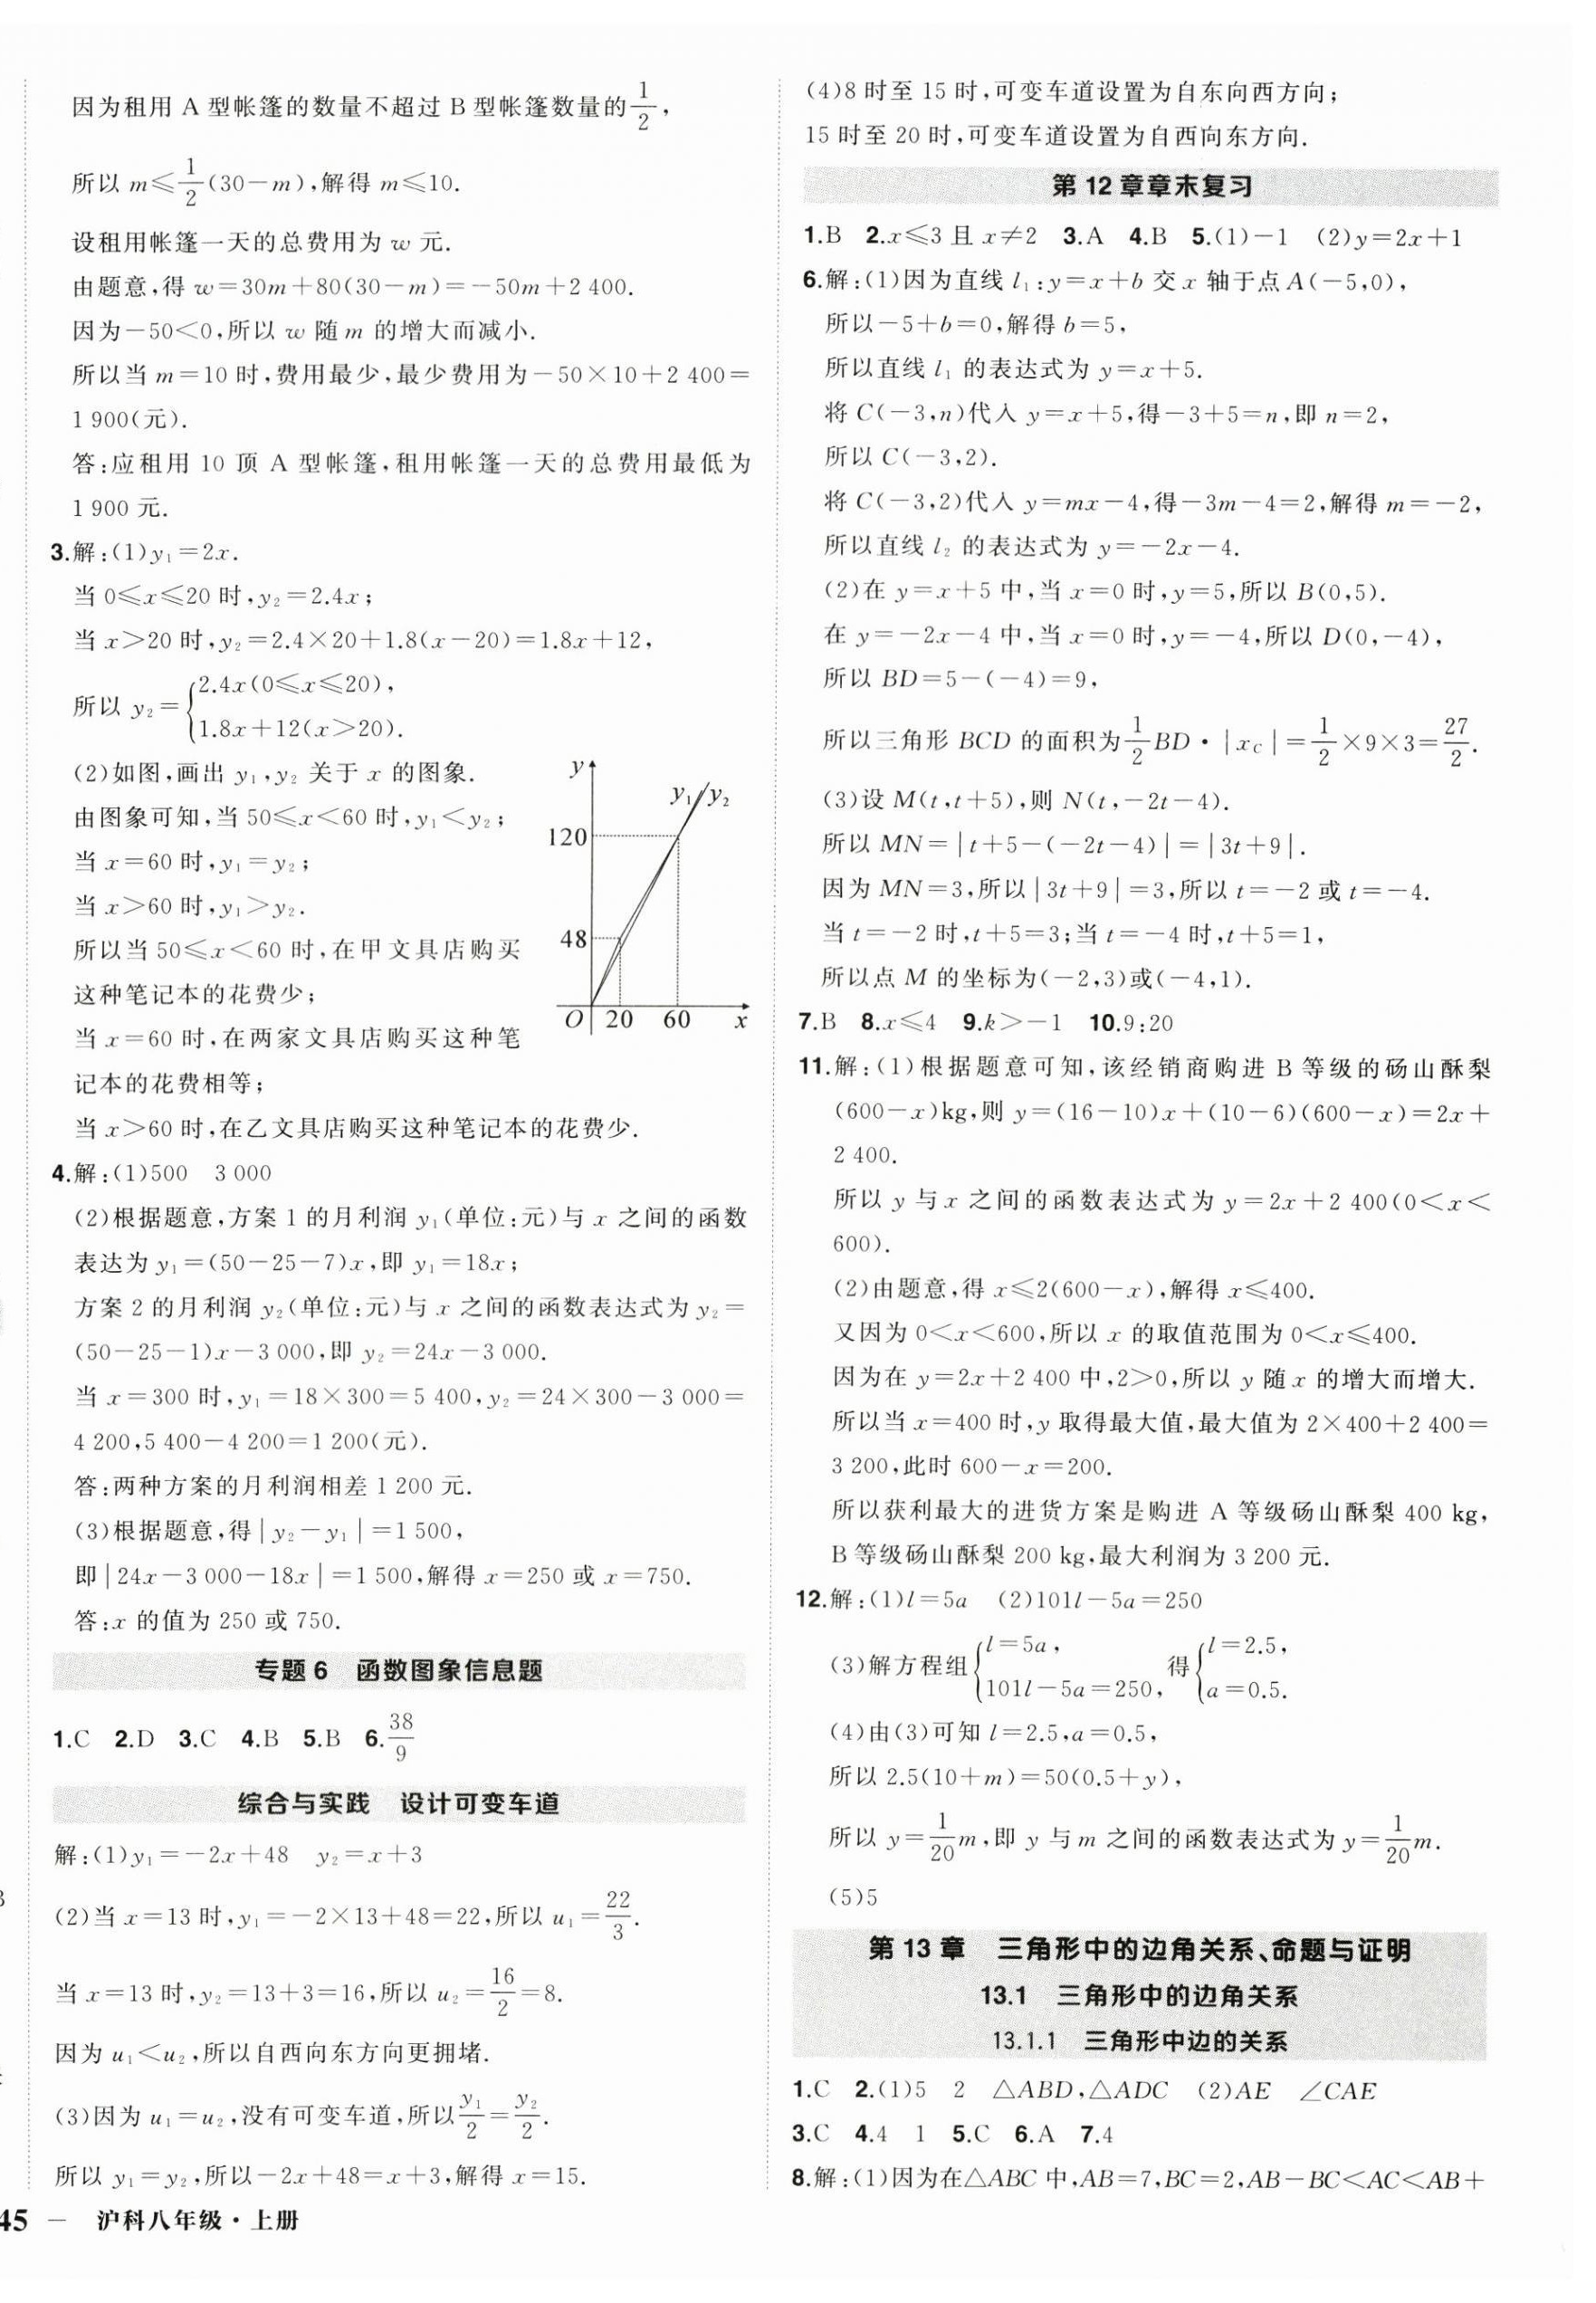 因为租用 A 型帐篷的数量不超过 B 型帐篷数量的1/2,
所以 m≤1/2(30−m),解得 m≤10.
设租用帐篷一天的总费用为 w 元.
由题意,得 w=30m+80(30−m)=−50m+2 400.
因为−50<0,所以 w 随 m 的增大而减小.
所以当 m=10 时,费用最少,最少费用为−50×10+2 400=
1 900(元).
答:应租用 10 顶 A 型帐篷,租用帐篷一天的总费用最低为
1 900 元.
3.解:(1)y₁=2x.
当 0≤x≤20 时,y₂=2.4x;
当 x>20 时,y₂=2.4×20+1.8(x−20)=1.8x+12,
所以 y₂={2.4x(0≤x≤20),
1.8x+12(x>20).
(2)如图,画出 y₁,y₂ 关于 x 的图象.
由图象可知,当 50≤x<60 时,y₁<y₂;
当 x=60 时,y₁=y₂;
当 x>60 时,y₁>y₂.
所以当 50≤x<60 时,在甲文具店购买
这种笔记本的花费少;
当 x=60 时,在两家文具店购买这种笔
记本的花费相等;
当 x>60 时,在乙文具店购买这种笔记本的花费少.
y
y₁ y₂
120
48
O 20 60 x
4.解:(1)500 3 000
(2)根据题意,方案 1 的月利润 y₁(单位:元)与 x 之间的函数
表达为 y₁=(50−25−7)x,即 y₁=18x;
方案 2 的月利润 y₂(单位:元)与 x 之间的函数表达式为 y₂=
(50−25−1)x−3 000,即 y₂=24x−3 000.
当 x=300 时,y₁=18×300=5 400,y₂=24×300−3 000=
4 200,5 400−4 200=1 200(元).
答:两种方案的月利润相差 1 200 元.
(3)根据题意,得|y₂−y₁|=1 500,
即|24x−3 000−18x|=1 500,解得 x=250 或 x=750.
答:x 的值为 250 或 750.
专题 6 函数图象信息题
1.C 2.D 3.C 4.B 5.B 6.38/9
综合与实践 设计可变车道
解:(1)y₁=−2x+48 y₂=x+3
(2)当 x=13 时,y₁=−2×13+48=22,所以 u₁=22/3.
当 x=13 时,y₂=13+3=16,所以 u₂=16/2=8.
因为 u₁<u₂,所以自西向东方向更拥堵.
(3)因为 u₁=u₂,没有可变车道,所以y₁/2=y₂/2.
所以 y₁=y₂,所以−2x+48=x+3,解得 x=15.
45 — 沪科八年级·上册
(4)8 时至 15 时,可变车道设置为自东向西方向;
15 时至 20 时,可变车道设置为自西向东方向.
第 12 章章末复习
1.B 2.x≤3 且 x≠2 3.A 4.B 5.(1)−1 (2)y=2x+1
6.解:(1)因为直线 l₁:y=x+b 交 x 轴于点 A(−5,0),
所以−5+b=0,解得 b=5,
所以直线 l₁ 的表达式为 y=x+5.
将 C(−3,n)代入 y=x+5,得−3+5=n,即 n=2,
所以 C(−3,2).
将 C(−3,2)代入 y=mx−4,得−3m−4=2,解得 m=−2,
所以直线 l₂ 的表达式为 y=−2x−4.
(2)在 y=x+5 中,当 x=0 时,y=5,所以 B(0,5).
在 y=−2x−4 中,当 x=0 时,y=−4,所以 D(0,−4),
所以 BD=5−(−4)=9,
所以三角形 BCD 的面积为1/2BD·|x_C|=1/2×9×3=27/2.
(3)设 M(t,t+5),则 N(t,−2t−4).
所以 MN=|t+5−(−2t−4)|=|3t+9|.
因为 MN=3,所以|3t+9|=3,所以 t=−2 或 t=−4.
当 t=−2 时,t+5=3;当 t=−4 时,t+5=1,
所以点 M 的坐标为(−2,3)或(−4,1).
7.B 8.x≤4 9.k>−1 10.9:20
11.解:(1)根据题意可知,该经销商购进 B 等级的砀山酥梨
(600−x)kg,则 y=(16−10)x+(10−6)(600−x)=2x+
2 400.
所以 y 与 x 之间的函数表达式为 y=2x+2 400(0<x<
600).
(2)由题意,得 x≤2(600−x),解得 x≤400.
又因为 0<x<600,所以 x 的取值范围为 0<x≤400.
因为在 y=2x+2 400 中,2>0,所以 y 随 x 的增大而增大.
所以当 x=400 时,y 取得最大值,最大值为 2×400+2 400=
3 200,此时 600−x=200.
所以获利最大的进货方案是购进 A 等级砀山酥梨 400 kg,
B 等级砀山酥梨 200 kg,最大利润为 3 200 元.
12.解:(1)l=5a (2)101l−5a=250
(3)解方程组{l=5a, 得{l=2.5,
101l−5a=250, a=0.5.
(4)由(3)可知 l=2.5,a=0.5,
所以 2.5(10+m)=50(0.5+y),
所以 y=1/20m,即 y 与 m 之间的函数表达式为 y=1/20m.
(5)5
第 13 章 三角形中的边角关系、命题与证明
13.1 三角形中的边角关系
13.1.1 三角形中边的关系
1.C 2.(1)5 2 △ABD,△ADC (2)AE ∠CAE
3.C 4.4 1 5.C 6.A 7.4
8.解:(1)因为在△ABC 中,AB=7,BC=2,AB−BC<AC<AB+